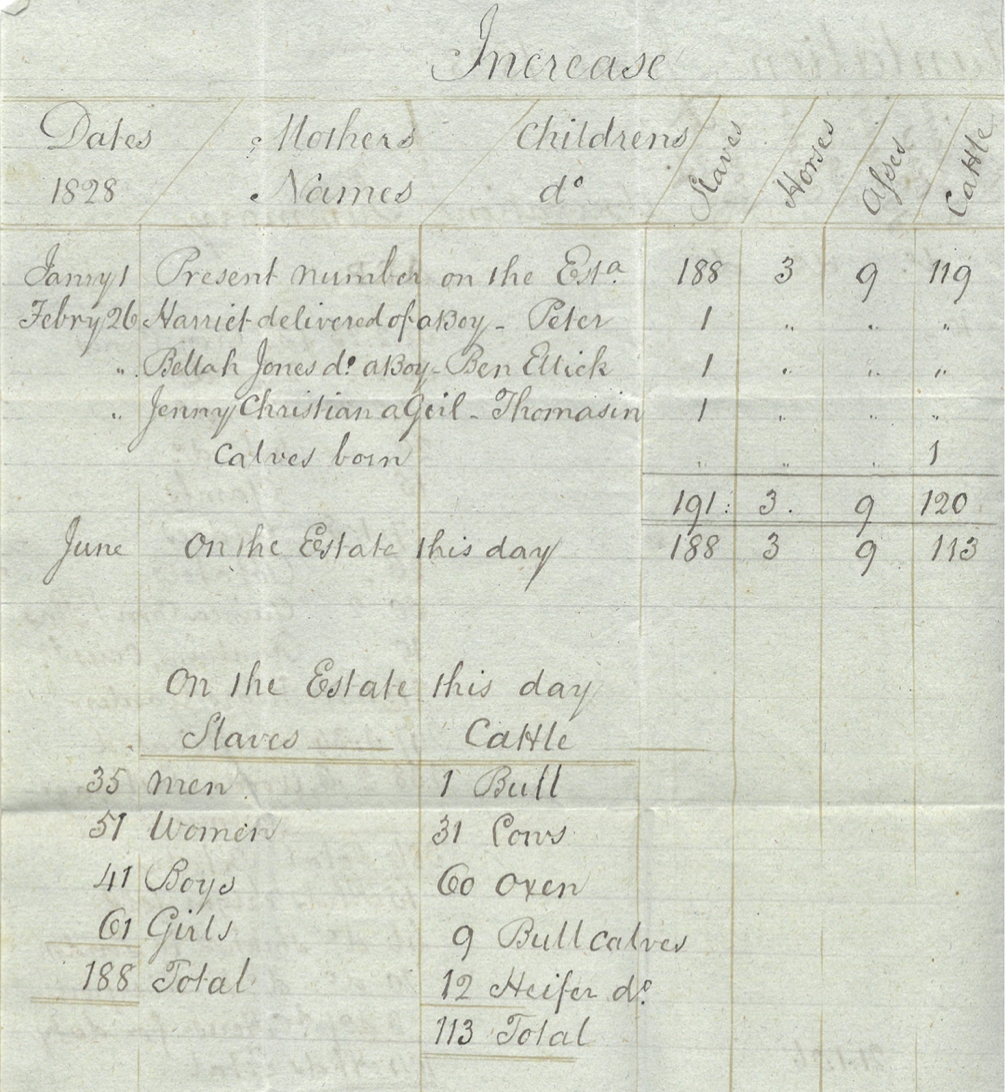 Increase
Dates Mothers Childrens Slaves Horses Asses Cattle
1828 Names do
Janry 1 Present number on the Esta. 188 3 9 119
Febry 26 Harriet delivered of a Boy - Peter 1 " " "
" Bellah Jones do. a Boy - Ben Ellick 1 " " "
" Jenny Christian a Geil - Thomasin 1 " " "
Calves born " " " 1
191: 3. 9 120
June On the Estate this day 188 3 9 113
On the Estate this day
Slaves Cattle
35 men 1 Bull
51 Women 31 Cows
41 Boys 60 Oxen
61 Girls 9 Bull calves
188 Total 12 Heifer do.
113 Total